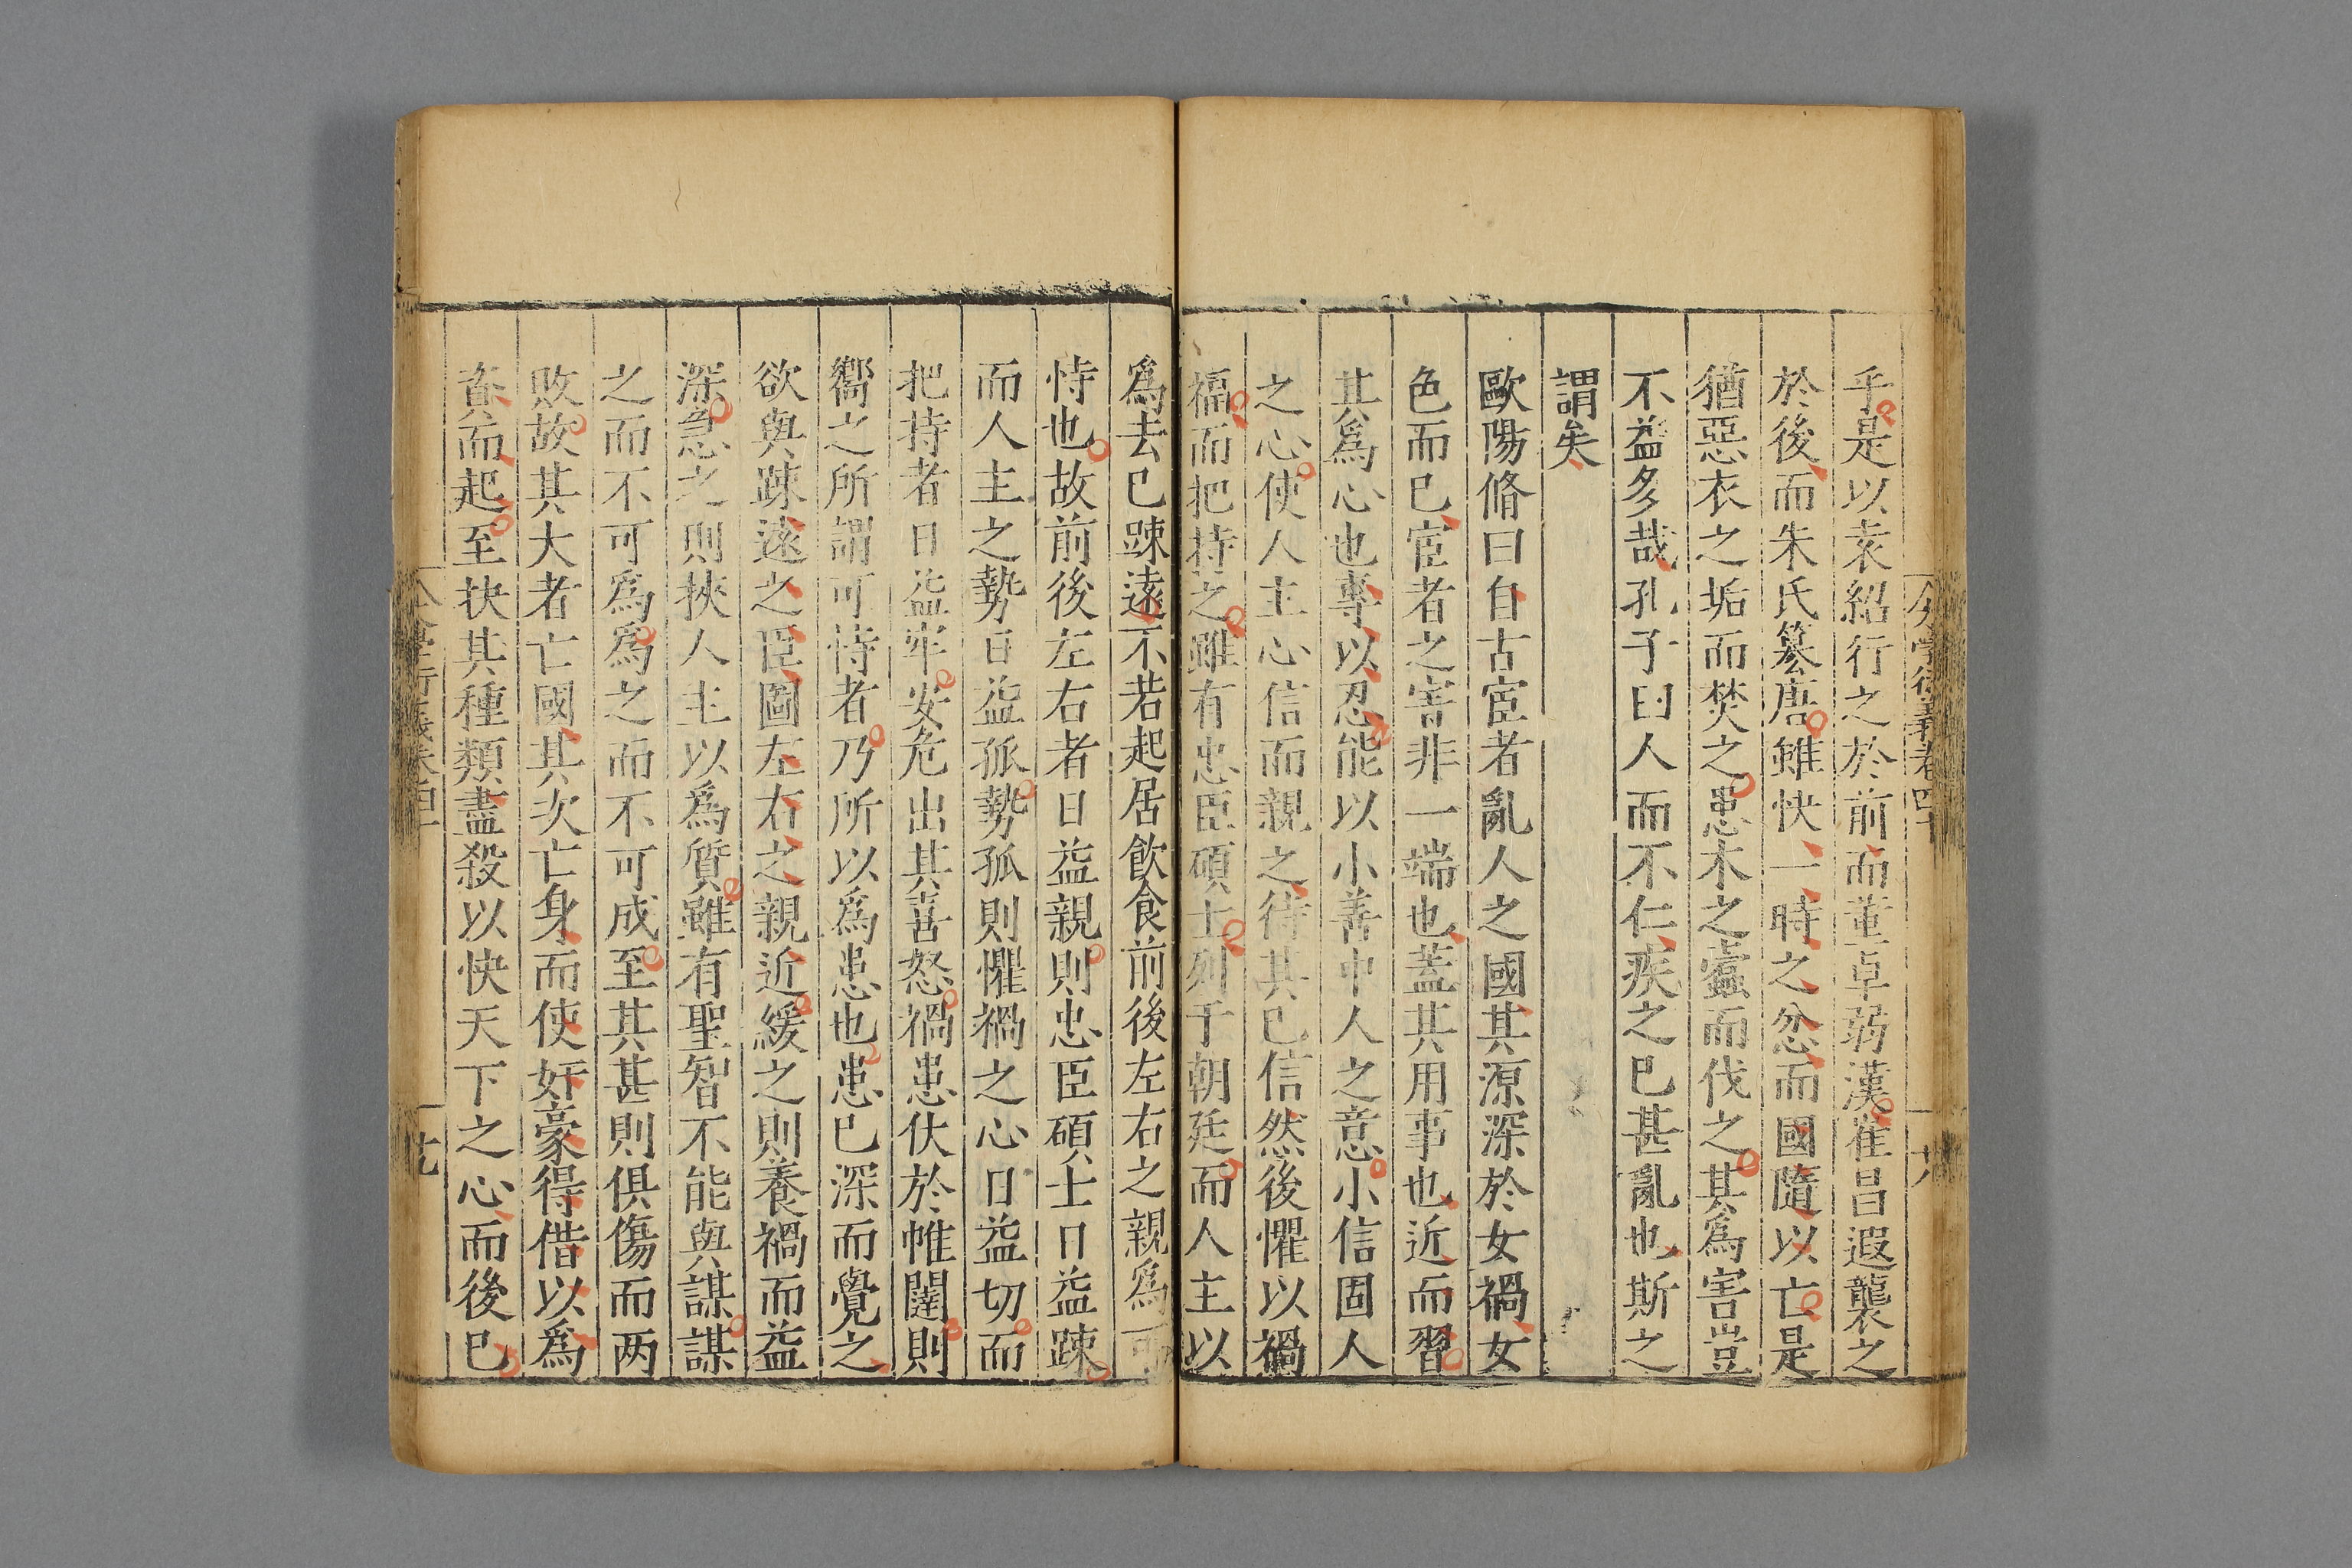 乎是以袁紹行之於前而董卓弱漢崔昌遐襲之
於後而朱氏簒唐雖快一時之忿而國隨以亡是
猶惡衣之垢而焚之患木之蠹而伐之其爲害豈
不益多哉孔子曰人而不仁疾之已甚亂也斯之
謂矣
歐陽脩曰自古宦者亂人之國其源深於女禍女
色而已宦者之害非一端也蓋其用事也近而習
其爲心也專以忍能以小善中人之意小信固人
之心使人主必信而親之待其已信然後懼以禍
福而把持之雖有忠臣碩士列于朝廷而人主以
爲去已踈遠不若起居飲食前後左右之親爲可
恃也故前後左右者日益親則忠臣碩士日益踈
而人主之勢日益孤勢孤則懼禍之心日益切而
把持者日益牢安危出其喜怒禍患伏於帷闥則
嚮之所謂可恃者乃所以爲患也患已深而覺之
欲與踈遠之臣圖左右之親近緩之則養禍而益
深急之則挾人主以爲質雖有聖智不能與謀謀
之而不可爲爲之而不可成至其甚則俱傷而两
敗故其大者亡國其次亡身而使奸豪得借以爲
資而起至抉其種類盡殺以快天下之心而後已